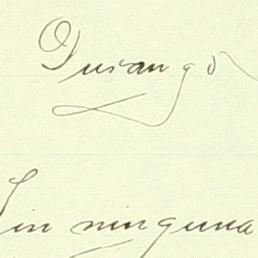 Durango
Sin ninguna